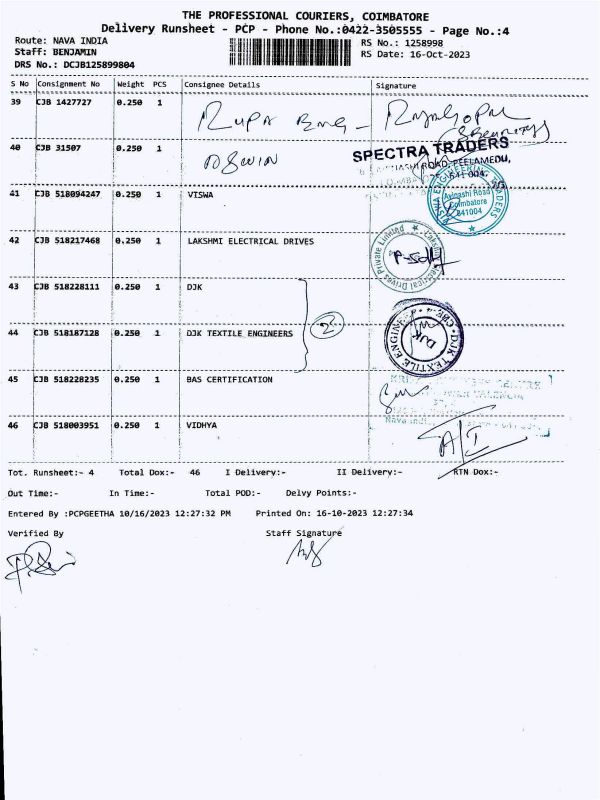 THE PROFESSIONAL COURIERS, COIMBATORE
Delivery Runsheet - PCP - Phone No.:0422-3505555 - Page No.:4
Route: NAVA INDIA RS No.: 1258998
Staff: BENJAMIN RS Date: 16-Oct-2023
DRS No.: DCJB125899804
S No Consignment No Weight PCS Consignee Details Signature
39 CJB 1427727 0.250 1 Rupa
40 CJB 31507 0.250 1
SPECTRA TRADERS
ROAD, PEELAMEDU,
641 004
41 CJB 518094247 0.250 1 VISWA
Avinashi Road
Coimbatore
641004
42 CJB 518217468 0.250 1 LAKSHMI ELECTRICAL DRIVES
Lakshmi Electrical Drives Private Limited
43 CJB 518228111 0.250 1 DJK
2
44 CJB 518187128 0.250 1 DJK TEXTILE ENGINEERS
DJK TEXTILE ENGINEERS CBE.4
DJK
45 CJB 518228235 0.250 1 BAS CERTIFICATION
46 CJB 518003951 0.250 1 VIDHYA
A/I
Tot. Runsheet:- 4 Total Dox:- 46 I Delivery:- II Delivery:- RTN Dox:-
Out Time:- In Time:- Total POD:- Delvy Points:-
Entered By :PCPGEETHA 10/16/2023 12:27:32 PM Printed On: 16-10-2023 12:27:34
Verified By Staff Signature